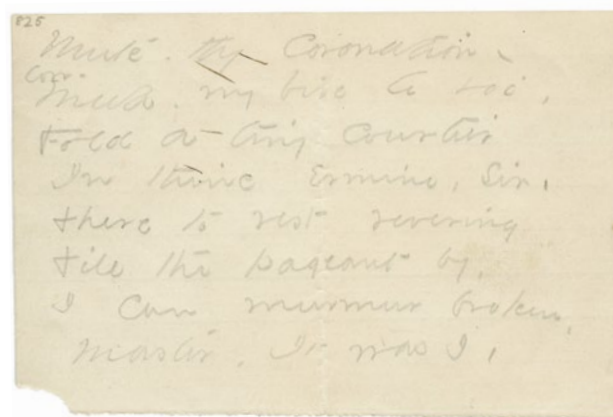 825
Mute - thy Coronation -
Meek - my Vive le roi,
Fold a tiny courtier
In thine Ermine, Sir,
There to rest revering
Till the pageant by,
I can murmur broken,
Master, It was I -